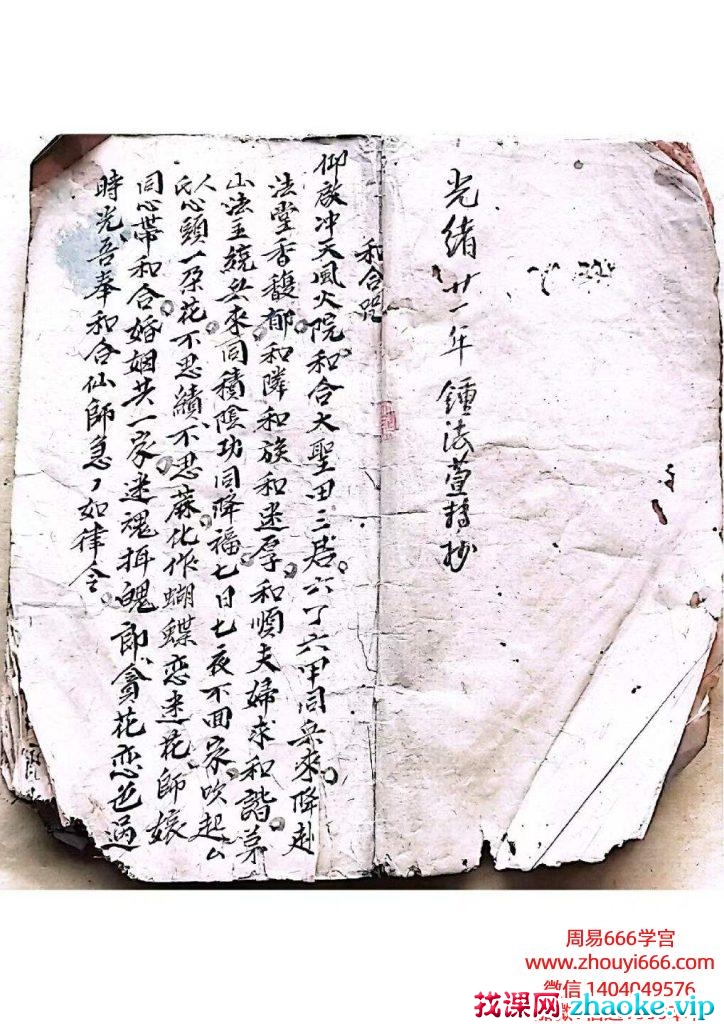 光緒廿一年鍾法萱轉抄
和合咒
仰啟冲天風火院和合大聖田三君六丁六甲同兵來降赴
法堂香馥郁和隣和族和迷厚和順夫婦求和諧茅
山法主統兵來同積陰功同降福七日七夜不回家吹起厶
人氏心頭一朶花不思績不思蔴化作蝴蝶恋迷花師娘
同心帶和合婚姻共一家迷魂揖魄郎貪花恋色過
時光吾奉和合仙師急〻如律令
周易666学宫
www.zhouyi666.com
微信 1404049576
找课网zhaoke.vip